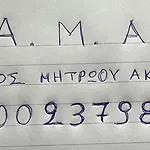 Α.Μ.Α
ΟΣ ΜΗΤΡΩΟΥ ΑΚ
0023798